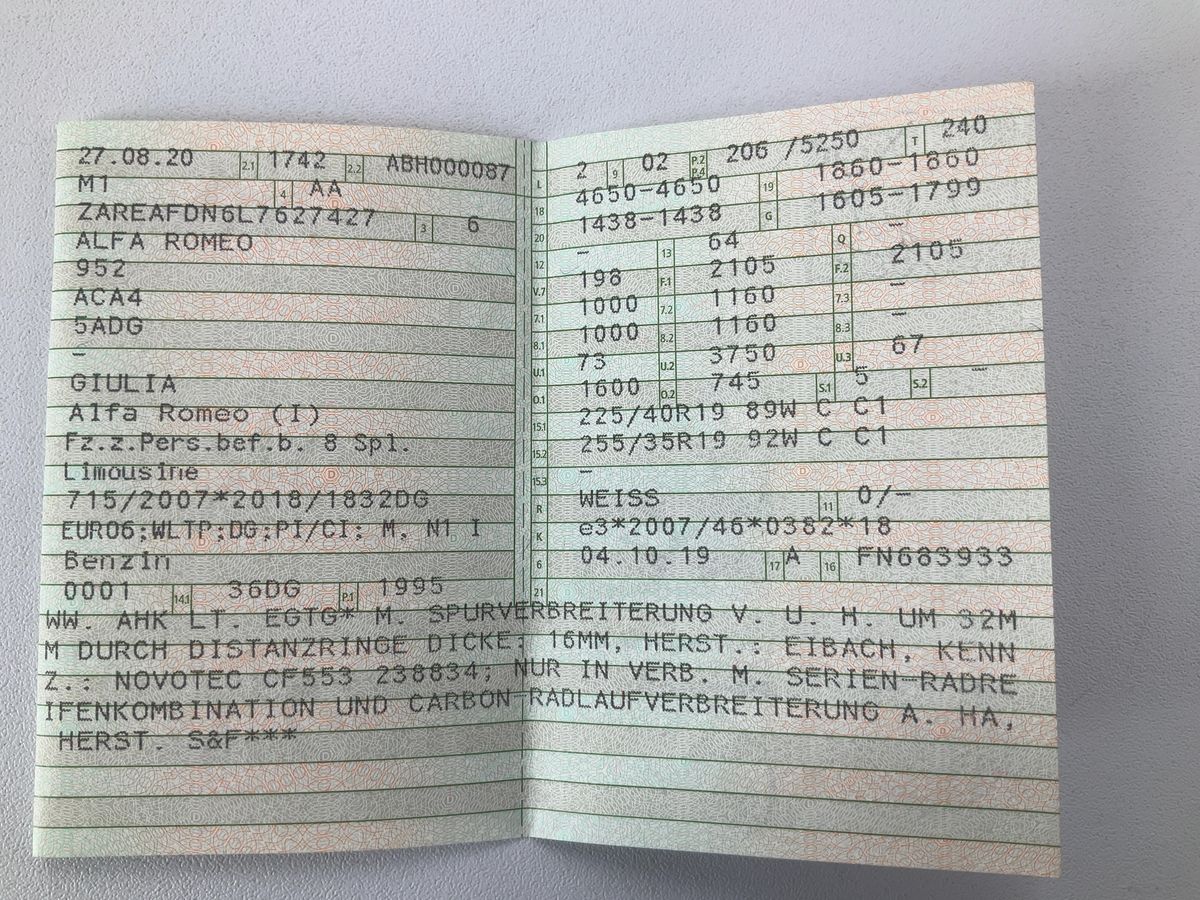 27.08.20 2.1 1742 2.2 ABH000087
M1 4 AA
ZAREAFDN6L7627427 3 6
ALFA ROMEO
952
ACA4
5ADG
–
GIULIA
Alfa Romeo (I)
Fz.z.Pers.bef.b. 8 Spl.
Limousine
715/2007*2018/1832DG
EURO6;WLTP;DG;PI/CI; M, N1 I
Benzin
0001 14.1 36DG P.1 1995
L 2 9 02 P.2 P.4 206 /5250 T 240
18 4650-4650 19 1860-1860
20 1438-1438 G 1605-1799
12 – 13 64 Q –
V.7 198 F.1 2105 F.2 2105
7.1 1000 7.2 1160 7.3 –
8.1 1000 8.2 1160 8.3 –
U.1 73 U.2 3750 U.3 67
O.1 1600 O.2 745 S.1 5 S.2 –
15.1 225/40R19 89W C C1
15.2 255/35R19 92W C C1
15.3 –
R WEISS 11 0/–
K e3*2007/46*0382*18
6 04.10.19 17 A 16 FN683933
21
WW. AHK LT. EGTG* M. SPURVERBREITERUNG V. U. H. UM 32M
M DURCH DISTANZRINGE DICKE: 16MM, HERST.: EIBACH, KENN
Z.: NOVOTEC CF553 238834; NUR IN VERB. M. SERIEN-RADRE
IFENKOMBINATION UND CARBON-RADLAUFVERBREITERUNG A. HA,
HERST. S&F***